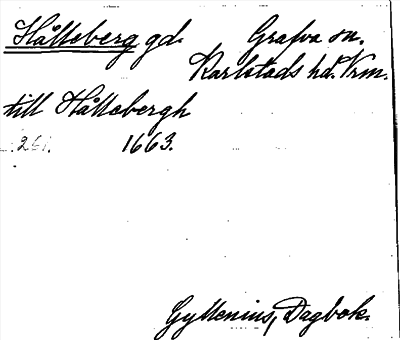 Hålleberg gd. Grafva sn.
Karlstads hd. Vrm.
till Hållebergh
261. 1663.
Gyllenius, Dagbok.